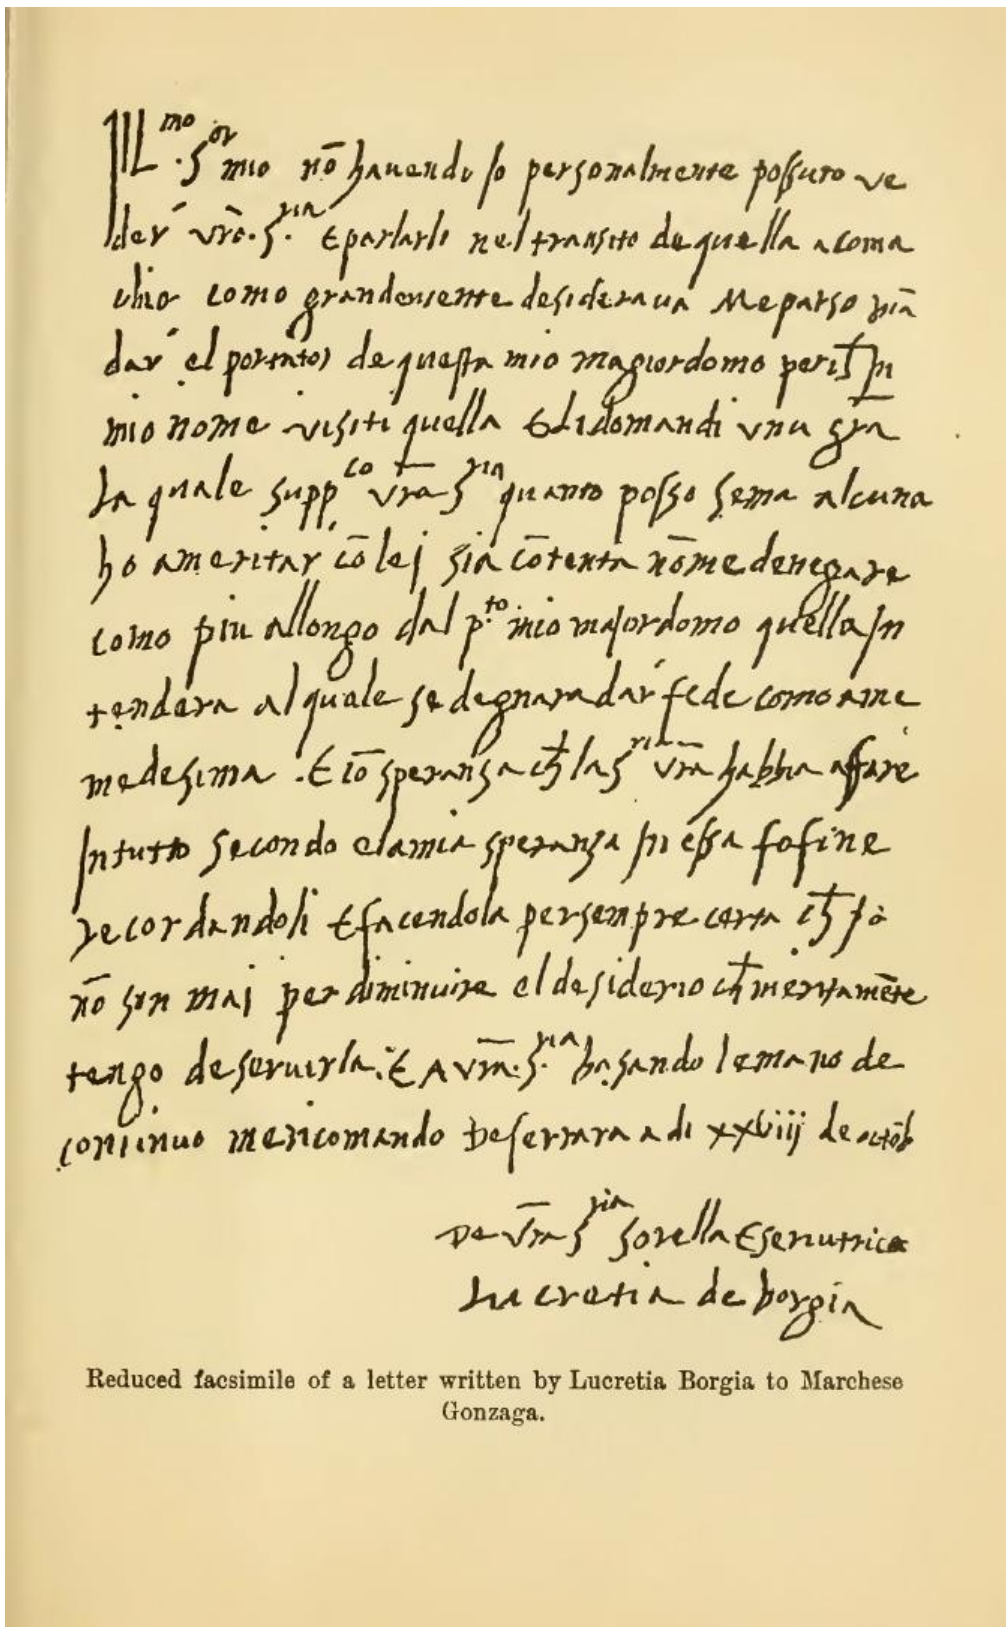 Ill.mo S.or mio nō havendo Io personalmente possuto ve
der' vrā. S.ria E parlarli nel transito de quella a coma
chio como grandemente desiderava Me parso mā
dar' el portator de questa mio magiordomo per in
mio nome visiti quella E li domandi una grā
La quale supp.co vrā S.ria quanto posso alcuna
ameritar' cō lej sia cōtenta nō me denegare
como piu allongo dal p.to mio majordomo quella In
tendera al quale se degnara dar' fede como a me
medesima . E cō speranza ch la S.ria vrā habbia affare
In tutto secondo e la mia speranza In essa fo fine
recordandoli E facendola per sempre certa ch Io
nō son maj per diminuire el desiderio ch meritamēte
tengo de servirla. E A vrā. S.ria basando le mano de
continuo me ricomando De ferrara a di xxviiij de octōb
De vrā S.ria Sorella E servitrice
Lucretia de borgia
Reduced facsimile of a letter written by Lucretia Borgia to Marchese
Gonzaga.